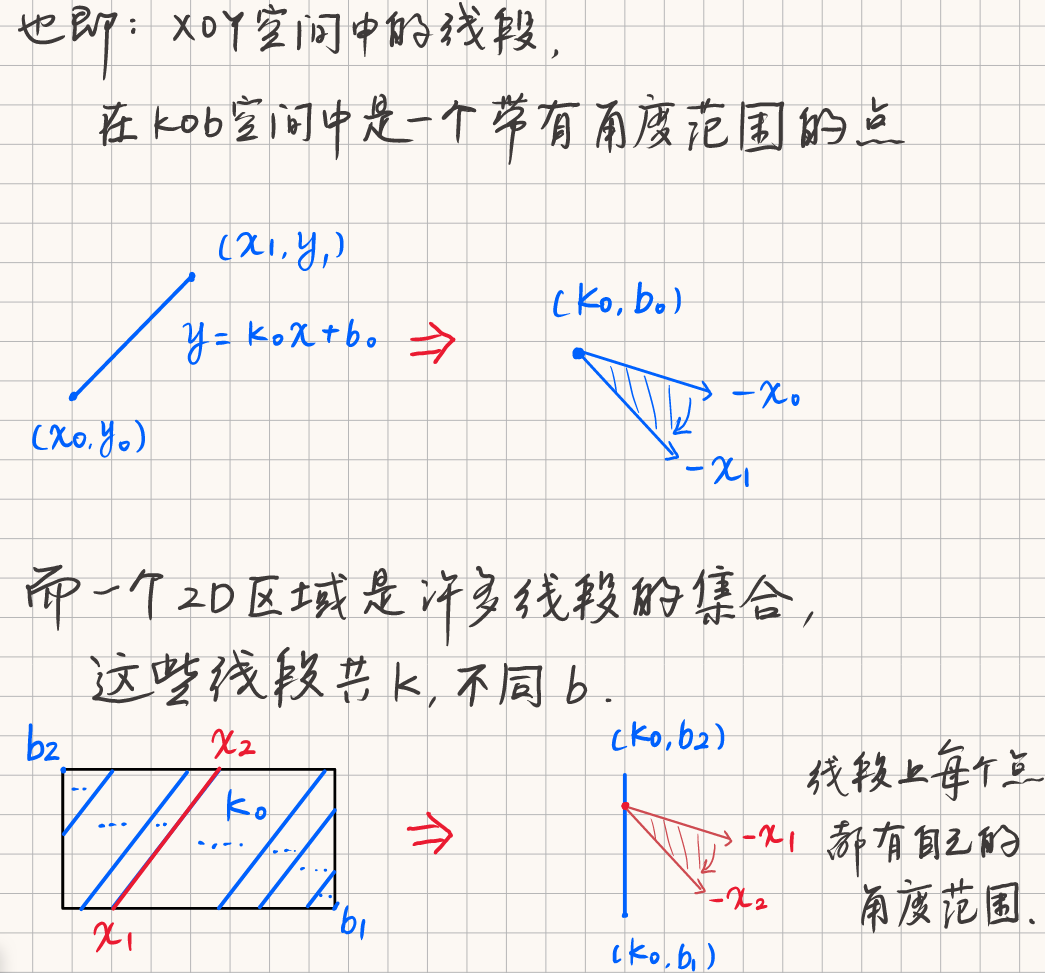 也即：XOY空间中的线段，
在kob空间中是一个带有角度范围的点
(x₁, y₁)
y = k₀x + b₀ ⇒
(x₀, y₀)
(k₀, b₀)
-x₀
-x₁
而一个2D区域是许多线段的集合，
这些线段共k, 不同b.
b₂
x₂
k₀
x₁
b₁
⇒
(k₀, b₂)
-x₁
-x₂
(k₀, b₁)
线段上每个点
都有自己的
角度范围.